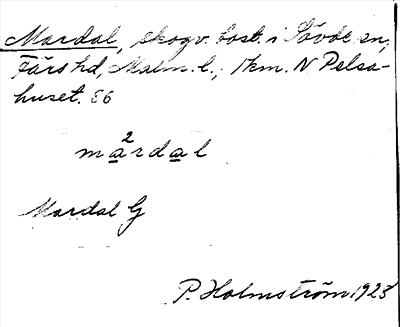 Mardal, skogv. bost. i Sövde sn,
Färs hd, Malm. l., 1 km. N Pelsa-
huset. E6
m a² r d a l
Mardal G
P. Holmström 1923